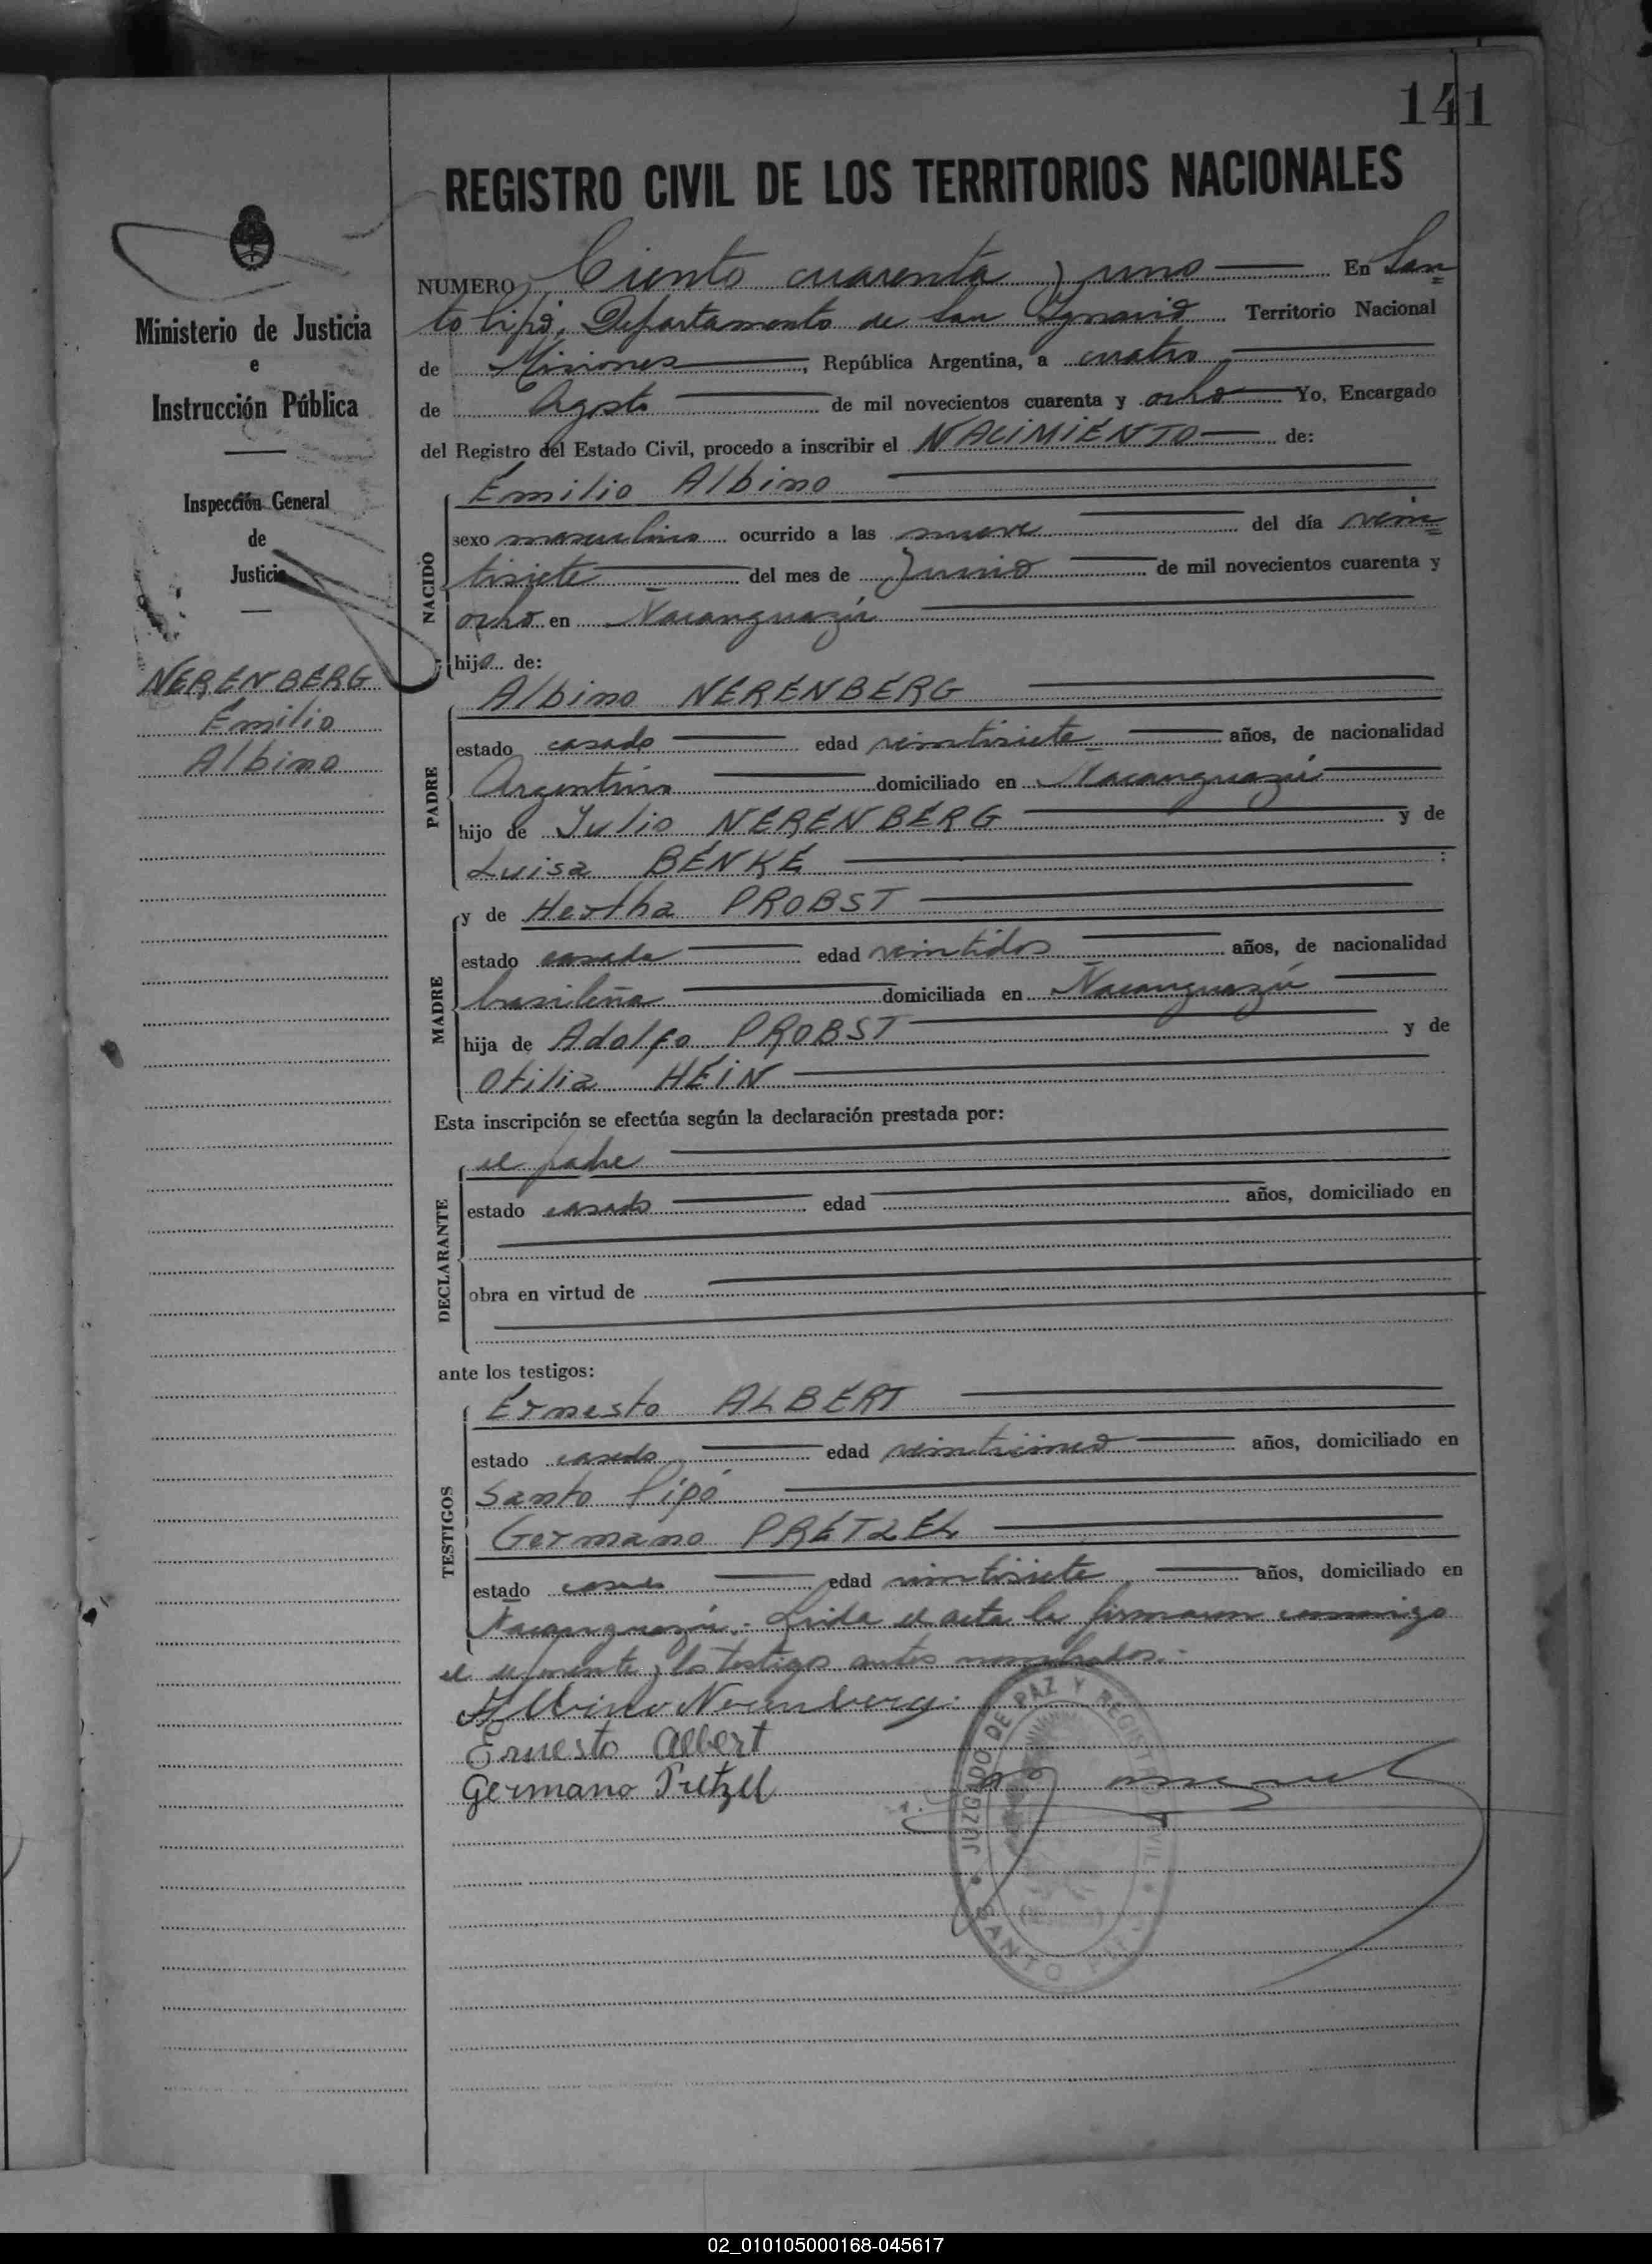 141
REGISTRO CIVIL DE LOS TERRITORIOS NACIONALES
Ministerio de Justicia
e
Instrucción Pública
Inspección General
de
Justicia
NERENBERG
Emilio
Albino
NUMERO Ciento cuarenta y uno En San
to Pipó, Departamento de San Ignacio Territorio Nacional
de Misiones, República Argentina, a cuatro
de Agosto de mil novecientos cuarenta y ocho Yo, Encargado
del Registro del Estado Civil, procedo a inscribir el NACIMIENTO de:
NACIDO
Emilio Albino
sexo masculino ocurrido a las nueve del día vein
tisiete del mes de Junio de mil novecientos cuarenta y
ocho en Ñacanguazú
hijo de:
PADRE
Albino NERENBERG
estado casado edad veintisiete años, de nacionalidad
Argentina domiciliado en Ñacanguazú
hijo de Julio NERENBERG y de
Luisa BENKE :
MADRE
y de Hertha PROBST
estado casada edad veintidos años, de nacionalidad
brasileña domiciliada en Ñacanguazú
hija de Adolfo PROBST y de
Otilia HEIN
Esta inscripción se efectúa según la declaración prestada por:
DECLARANTE
el padre
estado casado edad años, domiciliado en
obra en virtud de
ante los testigos:
TESTIGOS
Ernesto ALBERT
estado casado edad veinticinco años, domiciliado en
Santo Pipó
Germano PRETZEL
estado casado edad veintisiete años, domiciliado en
Ñacanguazú.- Leida el acta la firmaron conmigo
el exponente y los testigos antes nombrados.-
Albino Nerenberg.
Ernesto Albert
Germano Pretzel
JUZGADO DE PAZ Y REGISTRO CIVIL
SANTO PIPÓ
02_010105000168-045617